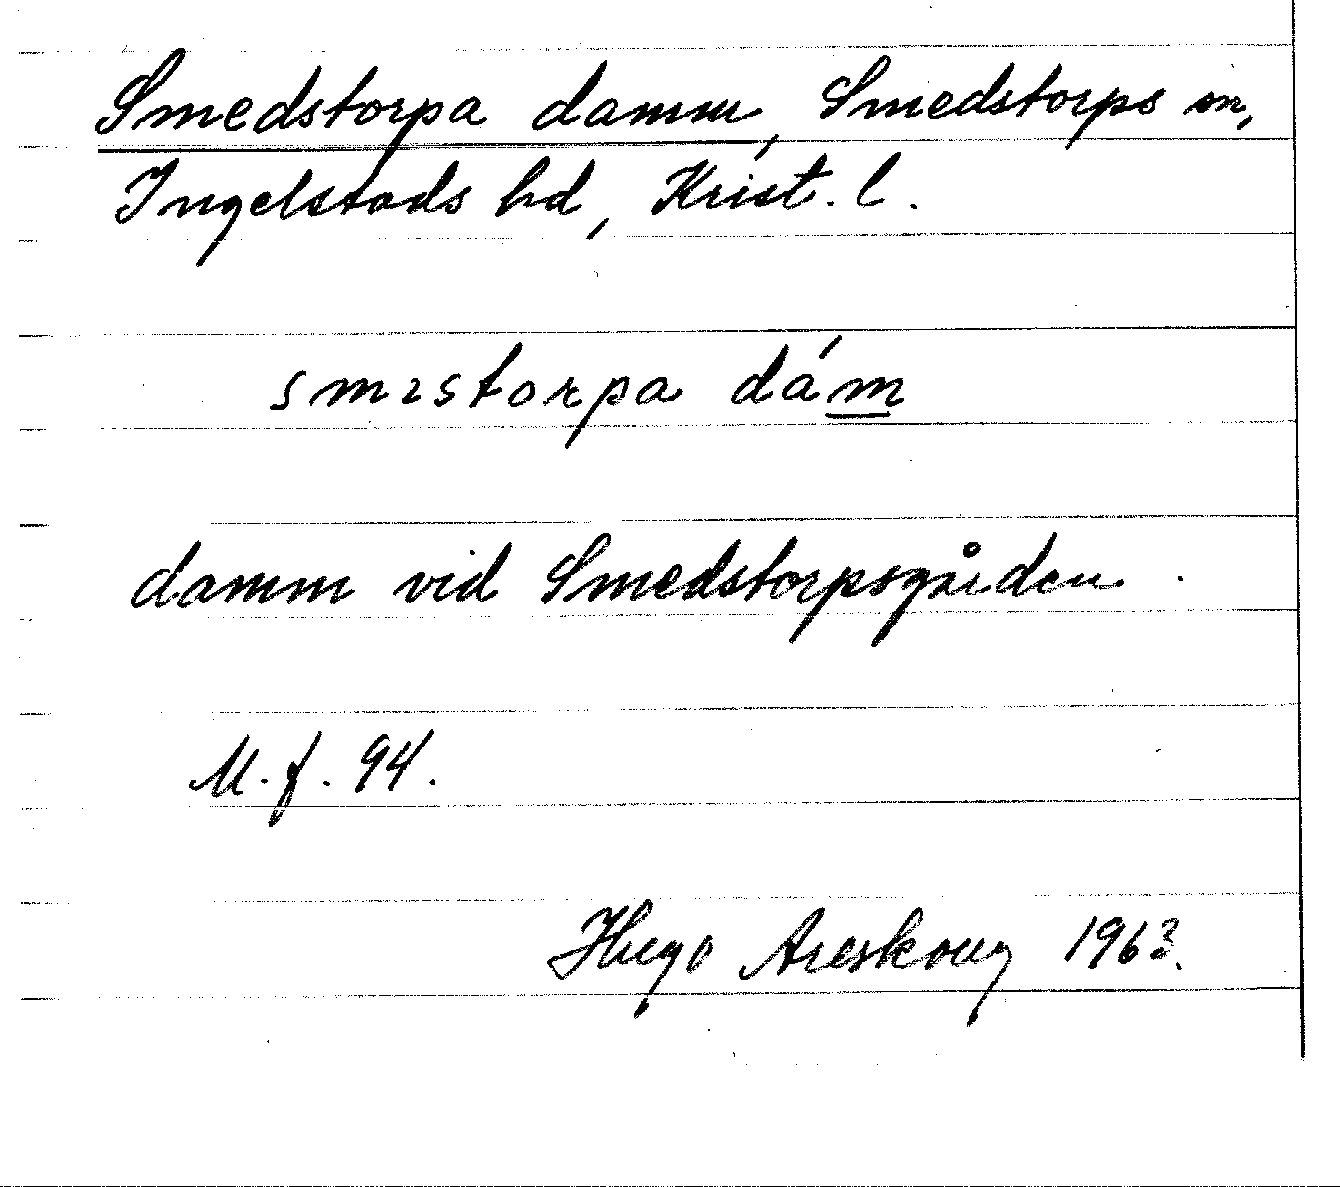 Smedstorpa damm, Smedstorps sn,
Ingelstads hd, Krist. l.
smɪstorpa dám
damm vid Smedstorpsgården.
M.f. 94.
Hugo Areskoug 1963.